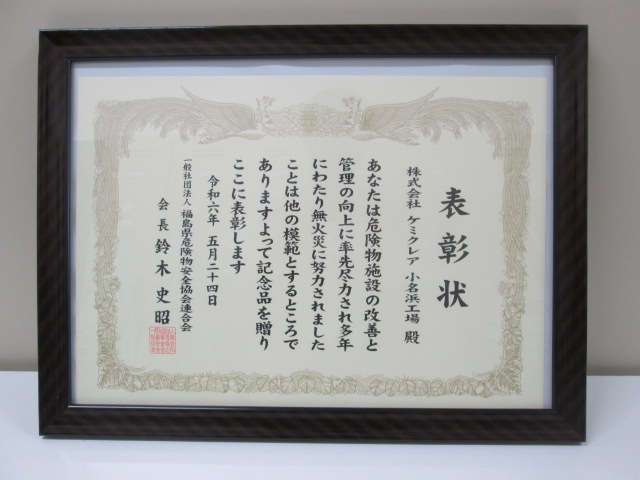 表彰状
株式会社 ケミクレア 小名浜工場 殿
あなたは危険物施設の改善と
管理の向上に率先尽力され多年
にわたり無火災に努力されました
ことは他の模範とするところで
ありますよって記念品を贈り
ここに表彰します
令和六年 五月二十四日
一般社団法人 福島県危険物安全協会連合会
会長 鈴木史昭